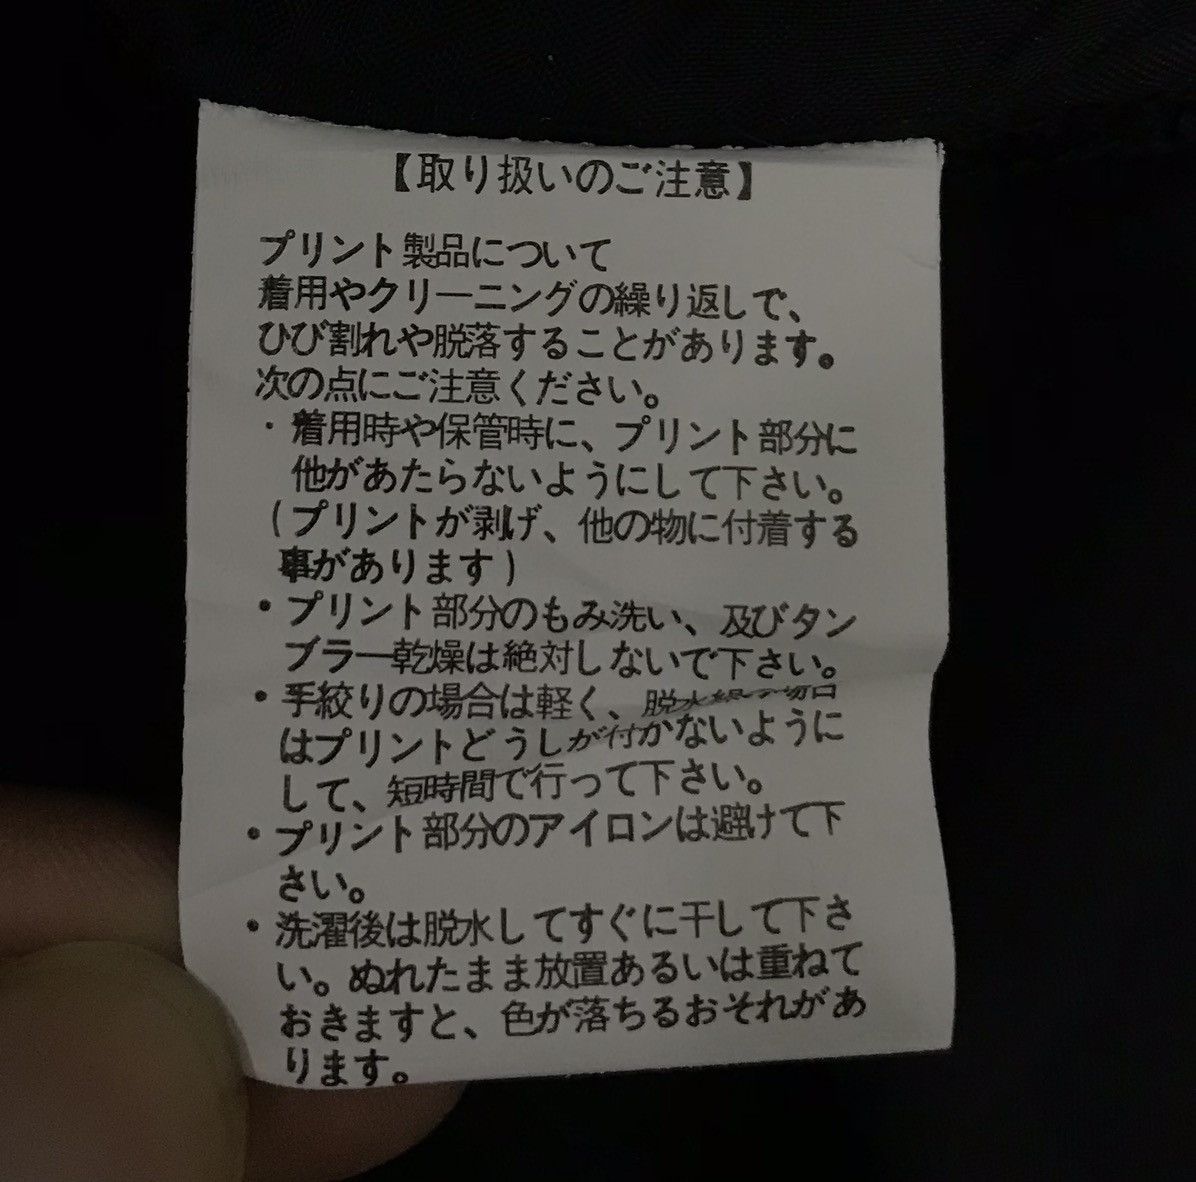 【取り扱いのご注意】
プリント製品について
着用やクリーニングの繰り返しで、
ひび割れや脱落することがあります。
次の点にご注意ください。
・着用時や保管時に、プリント部分に
他があたらないようにして下さい。
(プリントが剥げ、他の物に付着する
事があります)
・プリント部分のもみ洗い、及びタン
ブラー乾燥は絶対しないで下さい。
・手絞りの場合は軽く、脱水
はプリントどうしが付かないように
して、短時間で行って下さい。
・プリント部分のアイロンは避けて下
さい。
・洗濯後は脱水してすぐに干して下さ
い。ぬれたまま放置あるいは重ねて
おきますと、色が落ちるおそれがあ
ります。